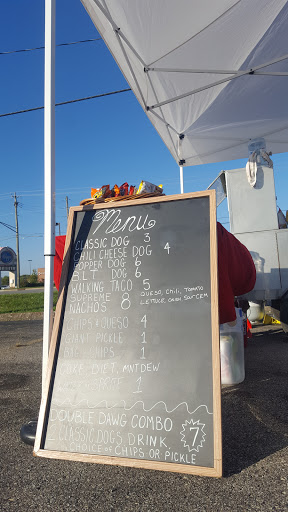 Menu
CLASSIC DOG 3
CHILI CHEESE DOG 4
POPPER DOG 6
BLT DOG 6
WALKING TACO 5
SUPREME NACHOS 8 QUESO, CHILI, TOMATO
LETTUCE, ONION SOUR CREM
CHIPS + QUESO 4
GIANT PICKLE 1
CHIPS 1
COKE, DIET, MNT DEW 1
1
DOUBLE DAWG COMBO
2 CLASSIC DOGS, DRINK,
CHOICE OF CHIPS OR PICKLE
7